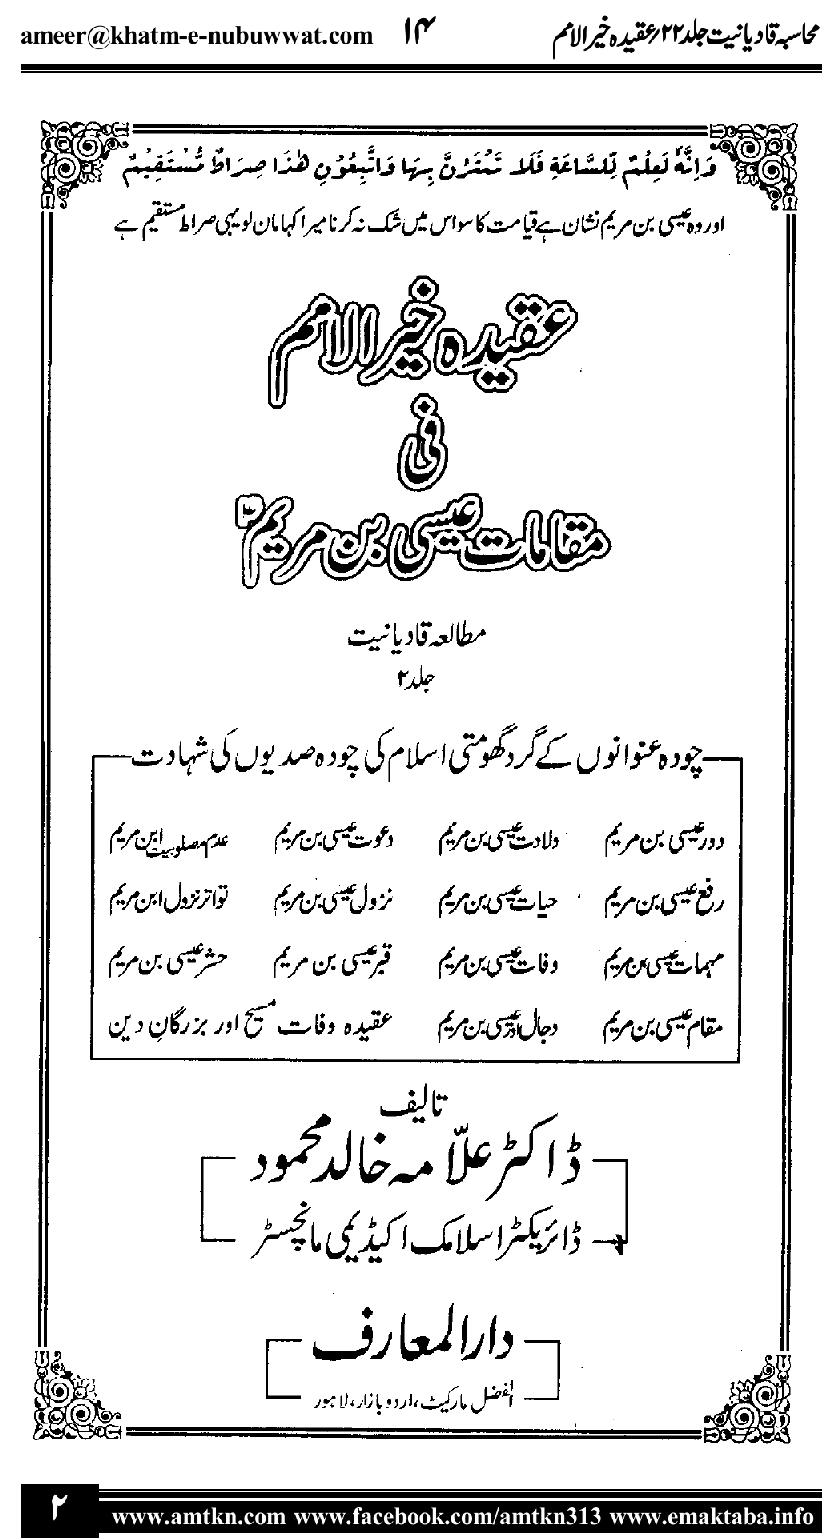 محاسبہ قادیانیت جلد ۲۲؍ عقیدہ خیر الامم ۱۴ ameer@khatm-e-nubuwwat.com
وَاِنَّهٗ لَعِلْمٌ لِّلسَّاعَةِ فَلَا تَمْتَرُنَّ بِهَا وَاتَّبِعُوْنِ هٰذَا صِرَاطٌ مُّسْتَقِيْمٌ
اور وہ عیسیٰ بن مریم نشان ہے قیامت کا سو اس میں شک نہ کرنا میرا کہا مان لو یہی صراط مستقیم ہے
عقیدہ خیر الامم
فی
مقامات عیسیٰ بن مریمؑ
مطالعہ قادیانیت
جلد ۲
چودہ عنوانوں کے گرد گھومتی اسلام کی چودہ صدیوں کی شہادت
دور عیسیٰ بن مریم ولادت عیسیٰ بن مریم دعوت عیسیٰ بن مریم عدم مصلوبیت ابن مریم
رفع عیسیٰ بن مریم حیات عیسیٰ بن مریم نزول عیسیٰ بن مریم تواتر نزول ابن مریم
مہمات عیسیٰ بن مریم وفات عیسیٰ بن مریم قبر عیسیٰ بن مریم حشر عیسیٰ بن مریم
مقام عیسیٰ بن مریم دجال اور عیسیٰ بن مریم عقیدہ وفات مسیح اور بزرگانِ دین
تالیف
ڈاکٹر علّامہ خالد محمود
ڈائریکٹر اسلامک اکیڈیمی مانچسٹر
دارالمعارف
الفضل مارکیٹ، اردو بازار، لاہور
۲ www.amtkn.com www.facebook.com/amtkn313 www.emaktaba.info